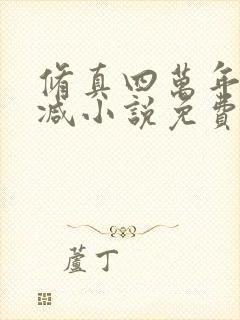 脩真四萬年
減小說免費
蘆丁